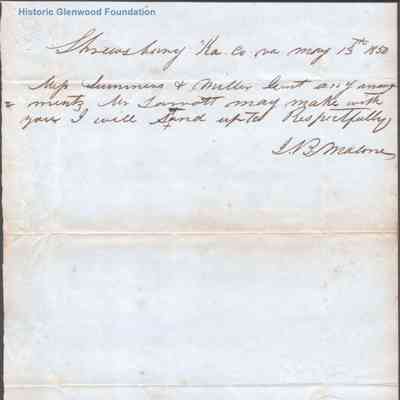 Historic Glenwood Foundation
Shrewsbury Ka. Co. va may 15th 1850
Messrs Summers & Miller Gent any arrang
= ments Mr may make with
you I will Stand up to Respectfully
J B Malone